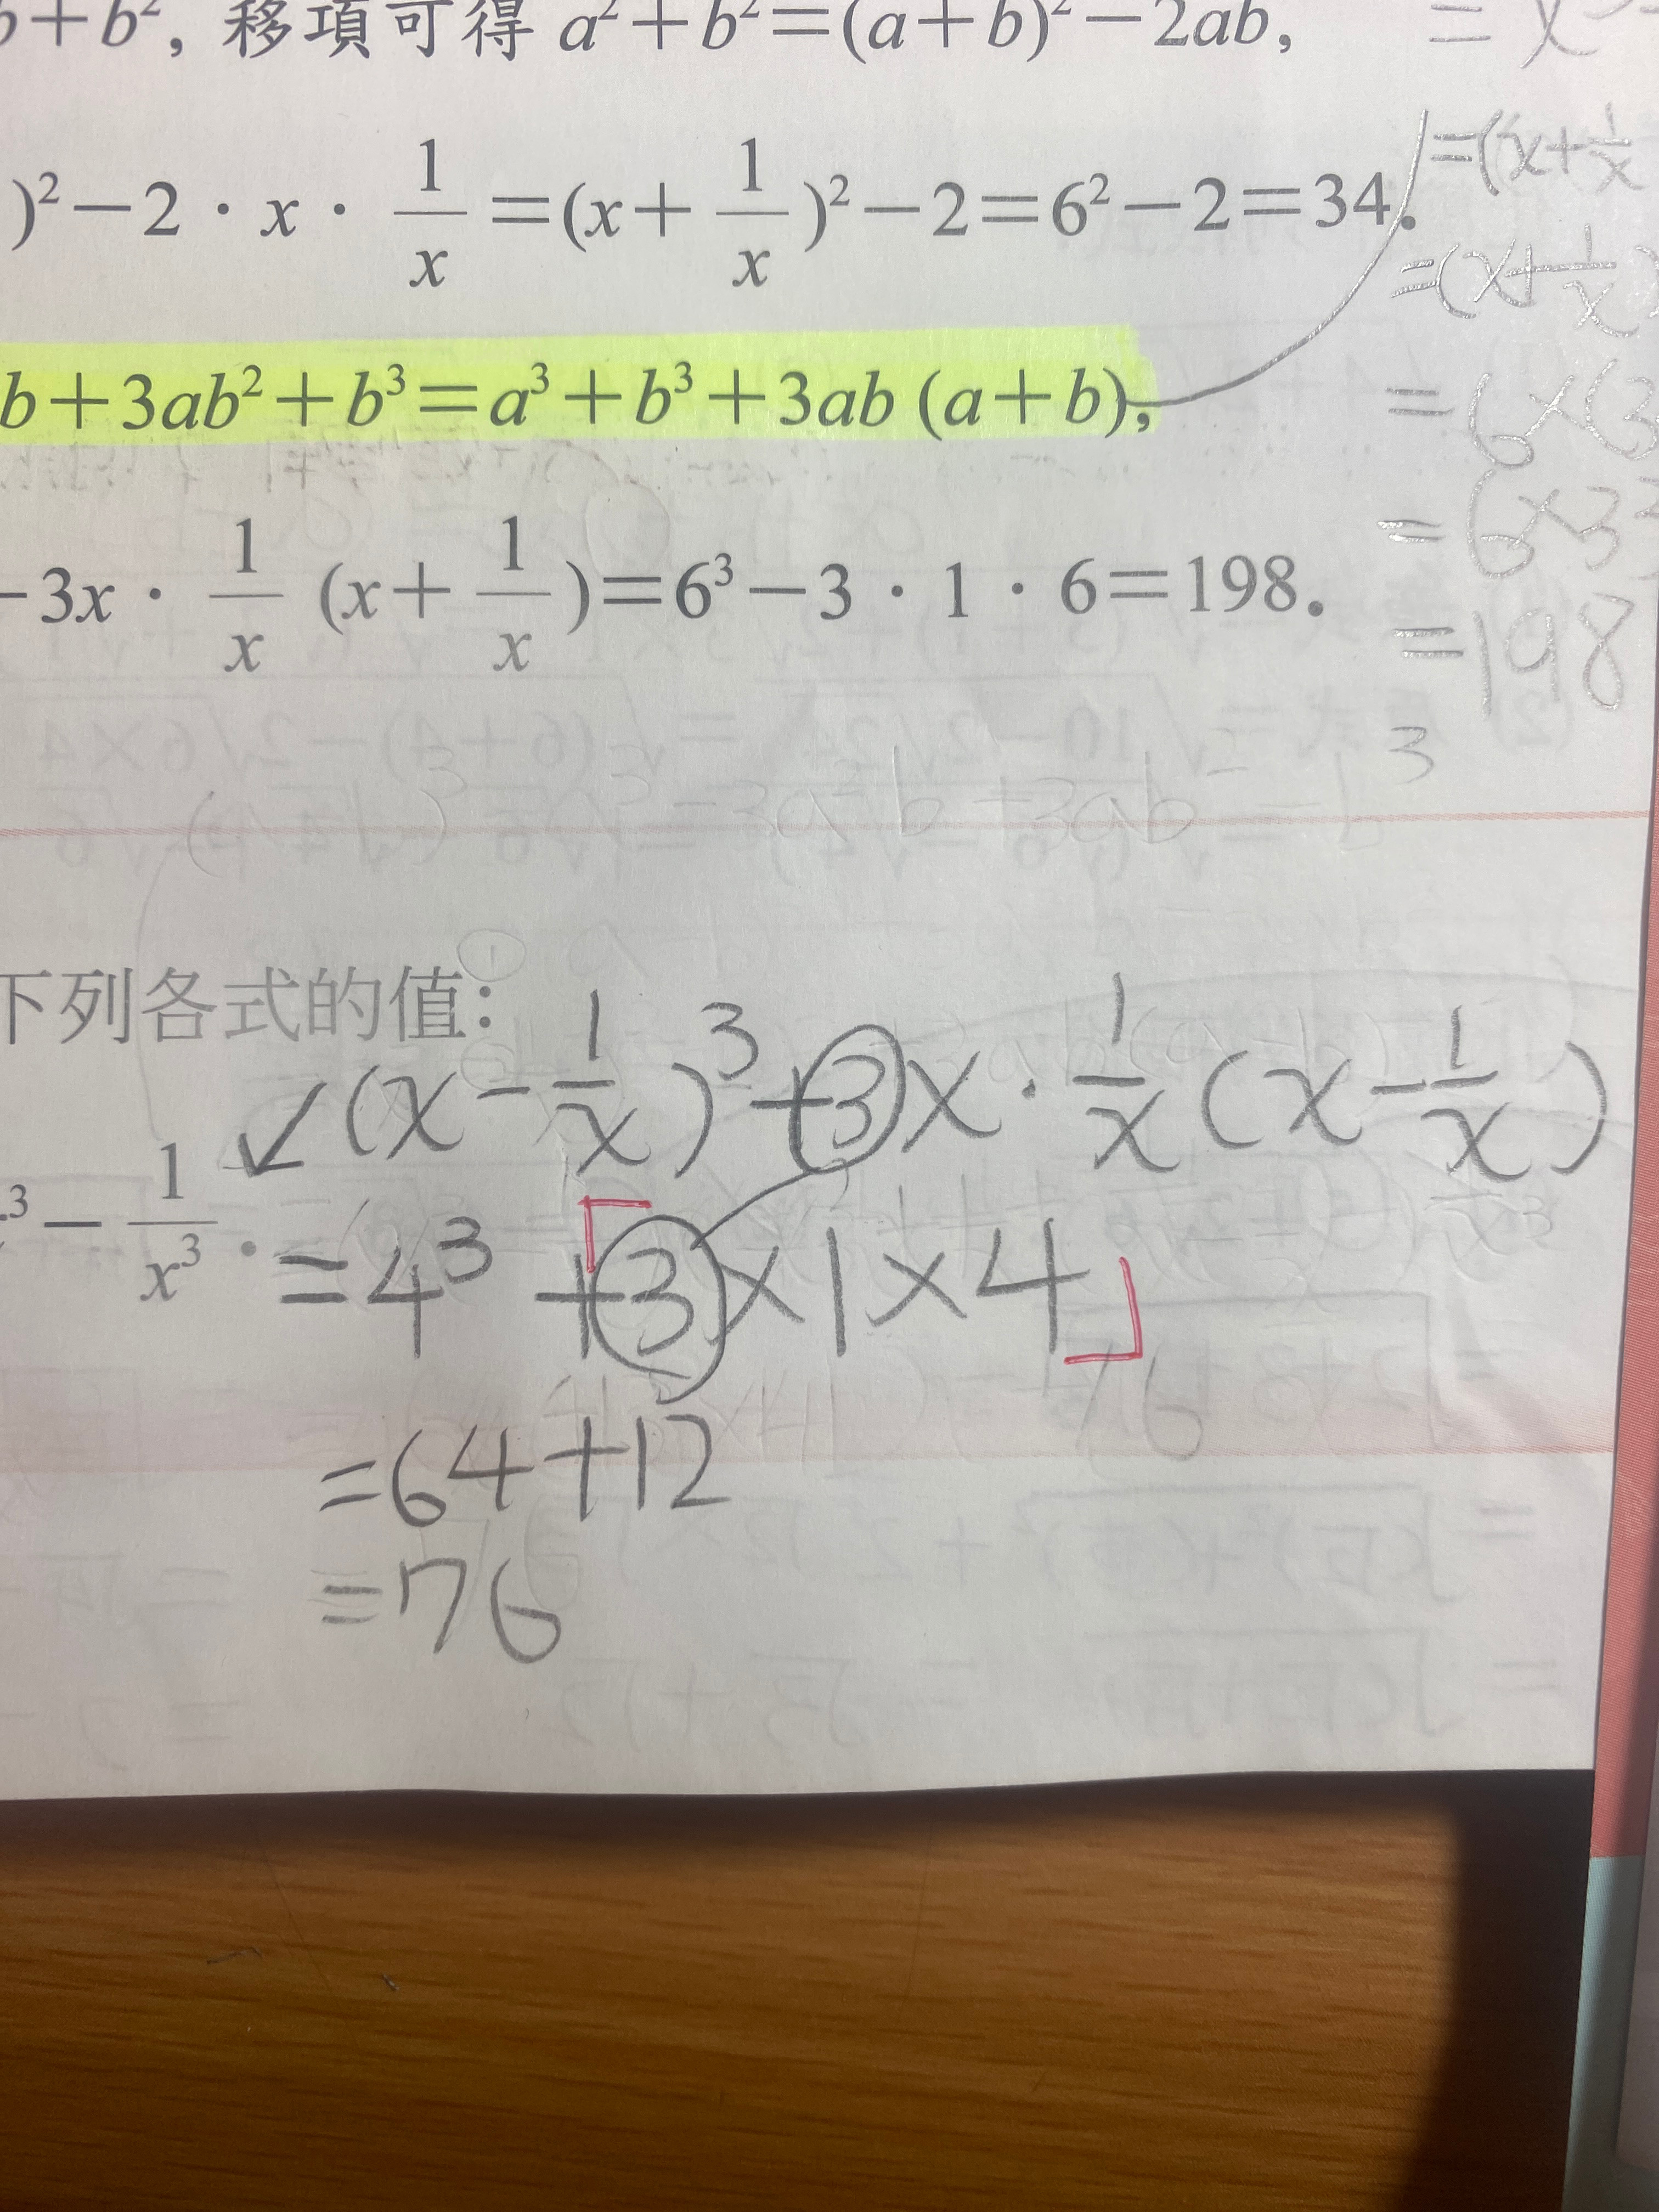 b+b², 移項可得 a²+b²=(a+b)²-2ab,
)²-2 · x · 1/x =(x+ 1/x )²-2=6²-2=34.
b+3ab²+b³=a³+b³+3ab (a+b),
-3x · 1/x (x+ 1/x )=6³-3 · 1 · 6=198.
= x
=(x+1/x
=(x+1/x)
=6×(3
=6×33
=198
下列各式的值:
³- 1/x³ .
(x-1/x)³+3x·1/x(x-1/x)
=4³+3×1×4
=64+12
=76